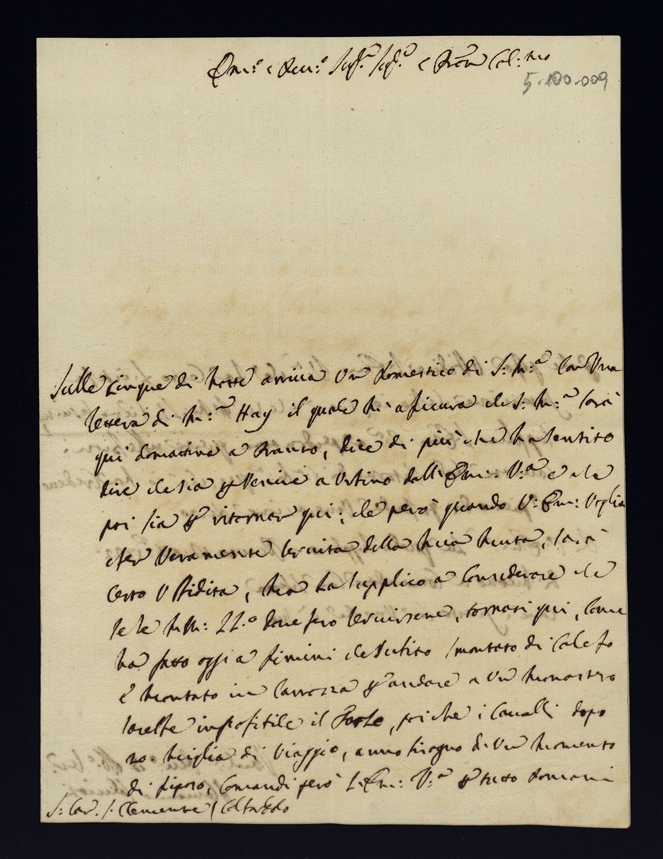 Em:º e Rev:º Sig:r Sig:r e Pron Col:mo
5-100-009
Sulle cinque di notte arriva un domestico di S: M:à con una
lettera di M:r Hay il quale mi assicura che S: M:à sarà
qui domattina a Pranzo, dice di più che ha sentito
dire che sia p Venire a Urbino dall' Em: V:a e che
poi sia p ritornar qui; che però quando V: Em: Voglia
esser Veramente servita della mia, sarà
certo Ubbidita, ma La supplico a Considerare che
se le MM: LL:º dovessero servirsene, tornati qui, come
ha fatto oggi a Rimini che subito smontato di Calesso
è montato in Carrozza p andare a Un Monastero
sarebbe impossibile il farlo, poiche i Cavalli dopo
no miglia di Viaggio, anno bisogno di Un momento
di riposo, comandi però L'Em: V:a p tutto domani
S: Car: S: Clemente / Castel